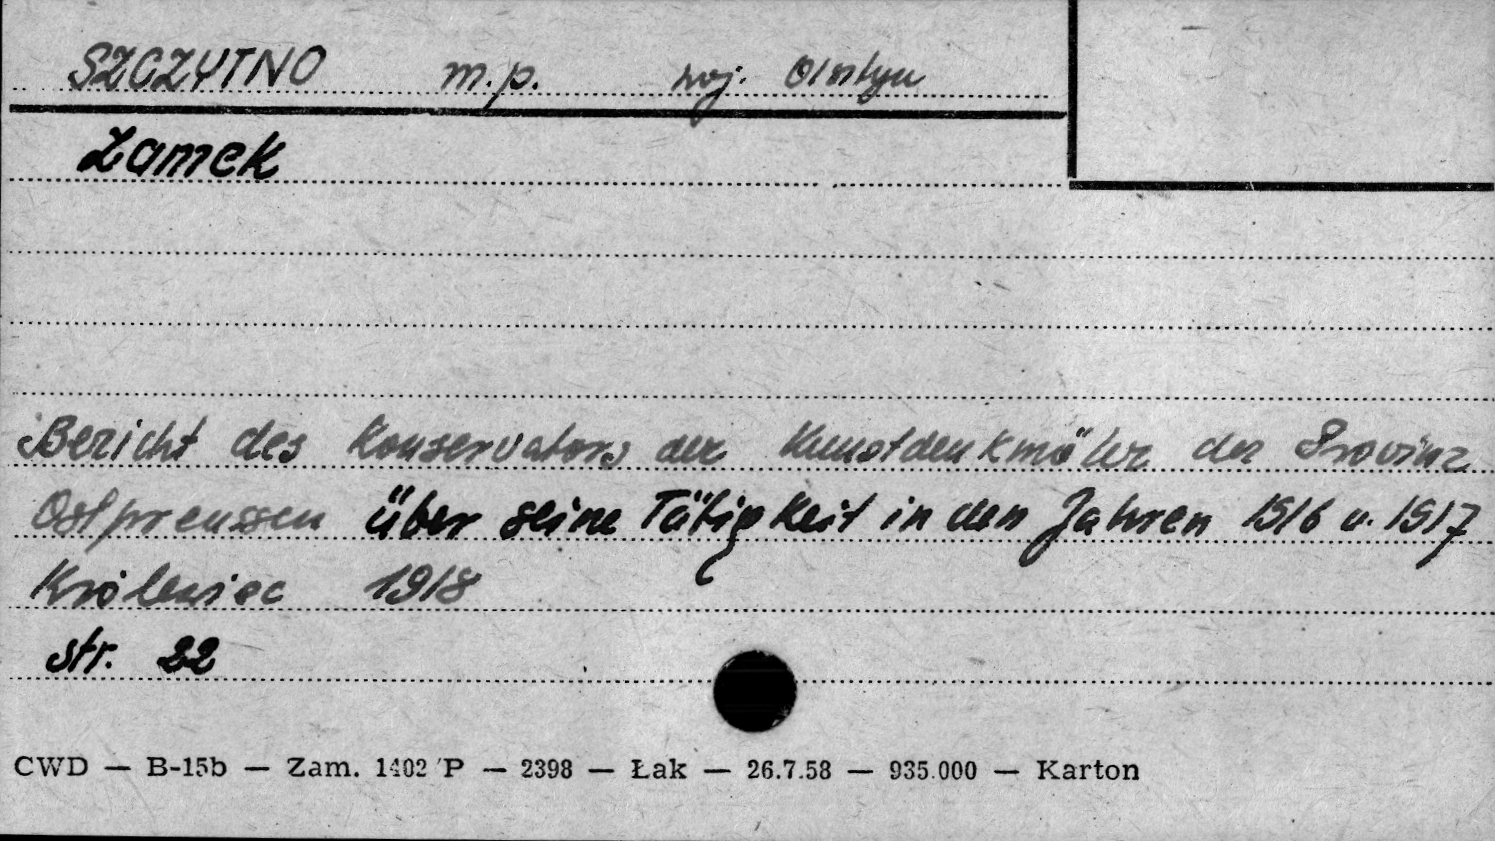 SZCZYTNO m.p. woj. Olsztyn
Zamek
Bericht des Konservators der Kunstdenkmäler der Provinz
Ostpreussen über seine Tätigkeit in den Jahren 1916 u. 1917
Królewiec 1918
str. 22
CWD — B-15b — Zam. 1402/P — 2398 — Łak — 26.7.58 — 935.000 — Karton